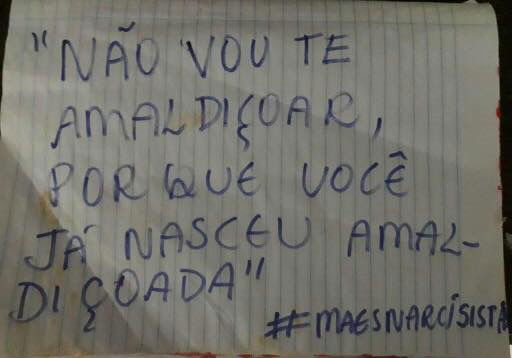 "NÃO VOU TE
AMALDIÇOAR,
PORQUE VOCÊ
JÁ NASCEU AMAL-
DIÇOADA"
#MAESNARCÍSISTA